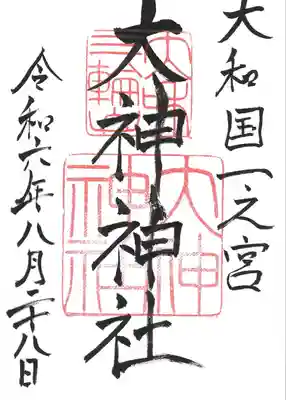 大和国一之宮
大神神社
大神
神社
令和六年八月二十八日